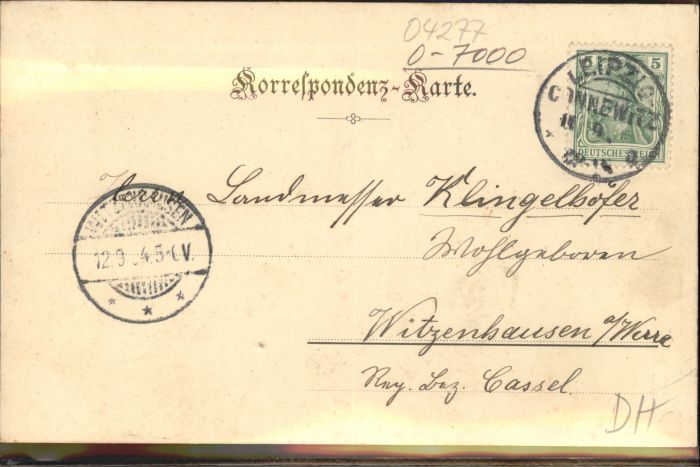 04277
0-7000
Korrespondenz-Karte.
5
DEUTSCHES REICH
LEIPZIG
CONNEWITZ
Herrn Landmesser Klingelhöfer
Wohlgeboren
Witzenhausen a/Werre
Reg. Bez. Cassel.
12.9.04.5-6V.
DH